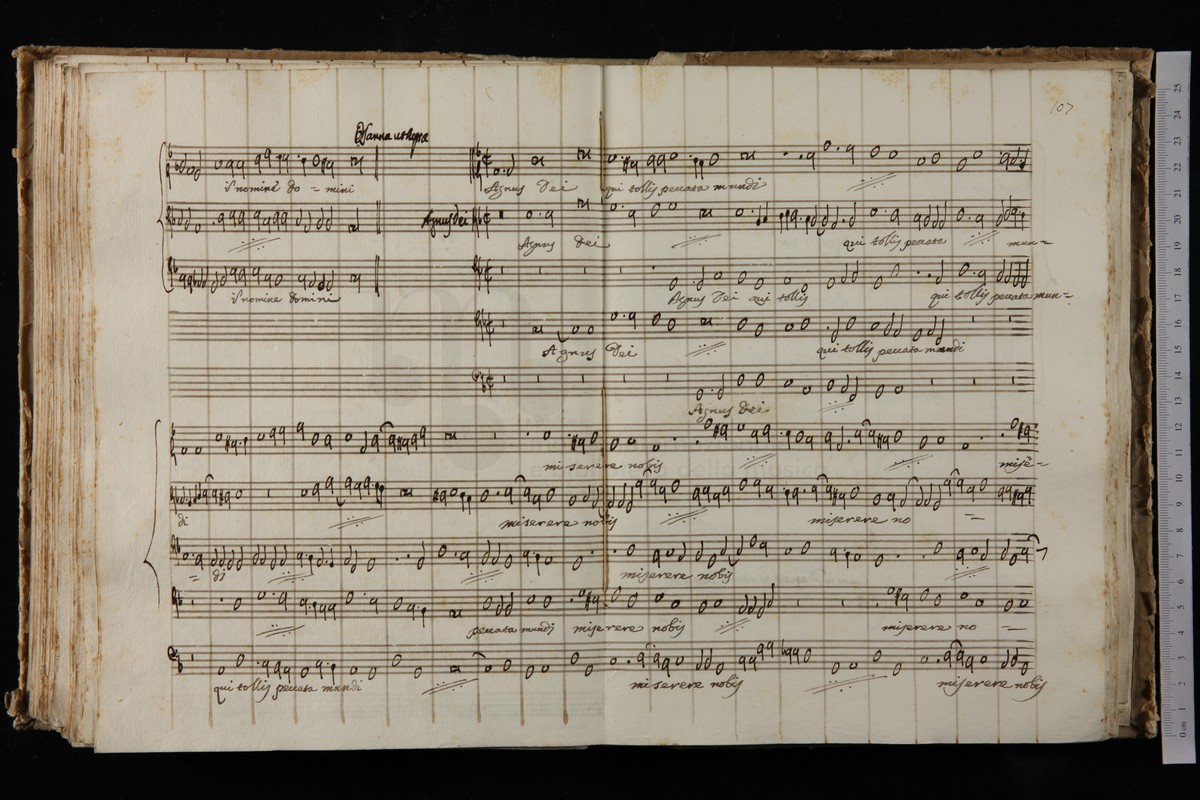 107
Osanna ut supra
i nomine do = mini Agnus Dei qui tollis peccata mundi
Agnus dei
Agnus Dei qui tollis peccata mun=
i nomine domini Agnus Dei qui tollis qui tollis peccata mun=
Agnus Dei qui tollis peccata mundi
Agnus Dei
miserere nobis mise=
di miserere nobis miserere no =
= di miserere nobis
peccata mundi miserere nobis miserere no =
qui tollis peccata mundi miserere nobis miserere nobis